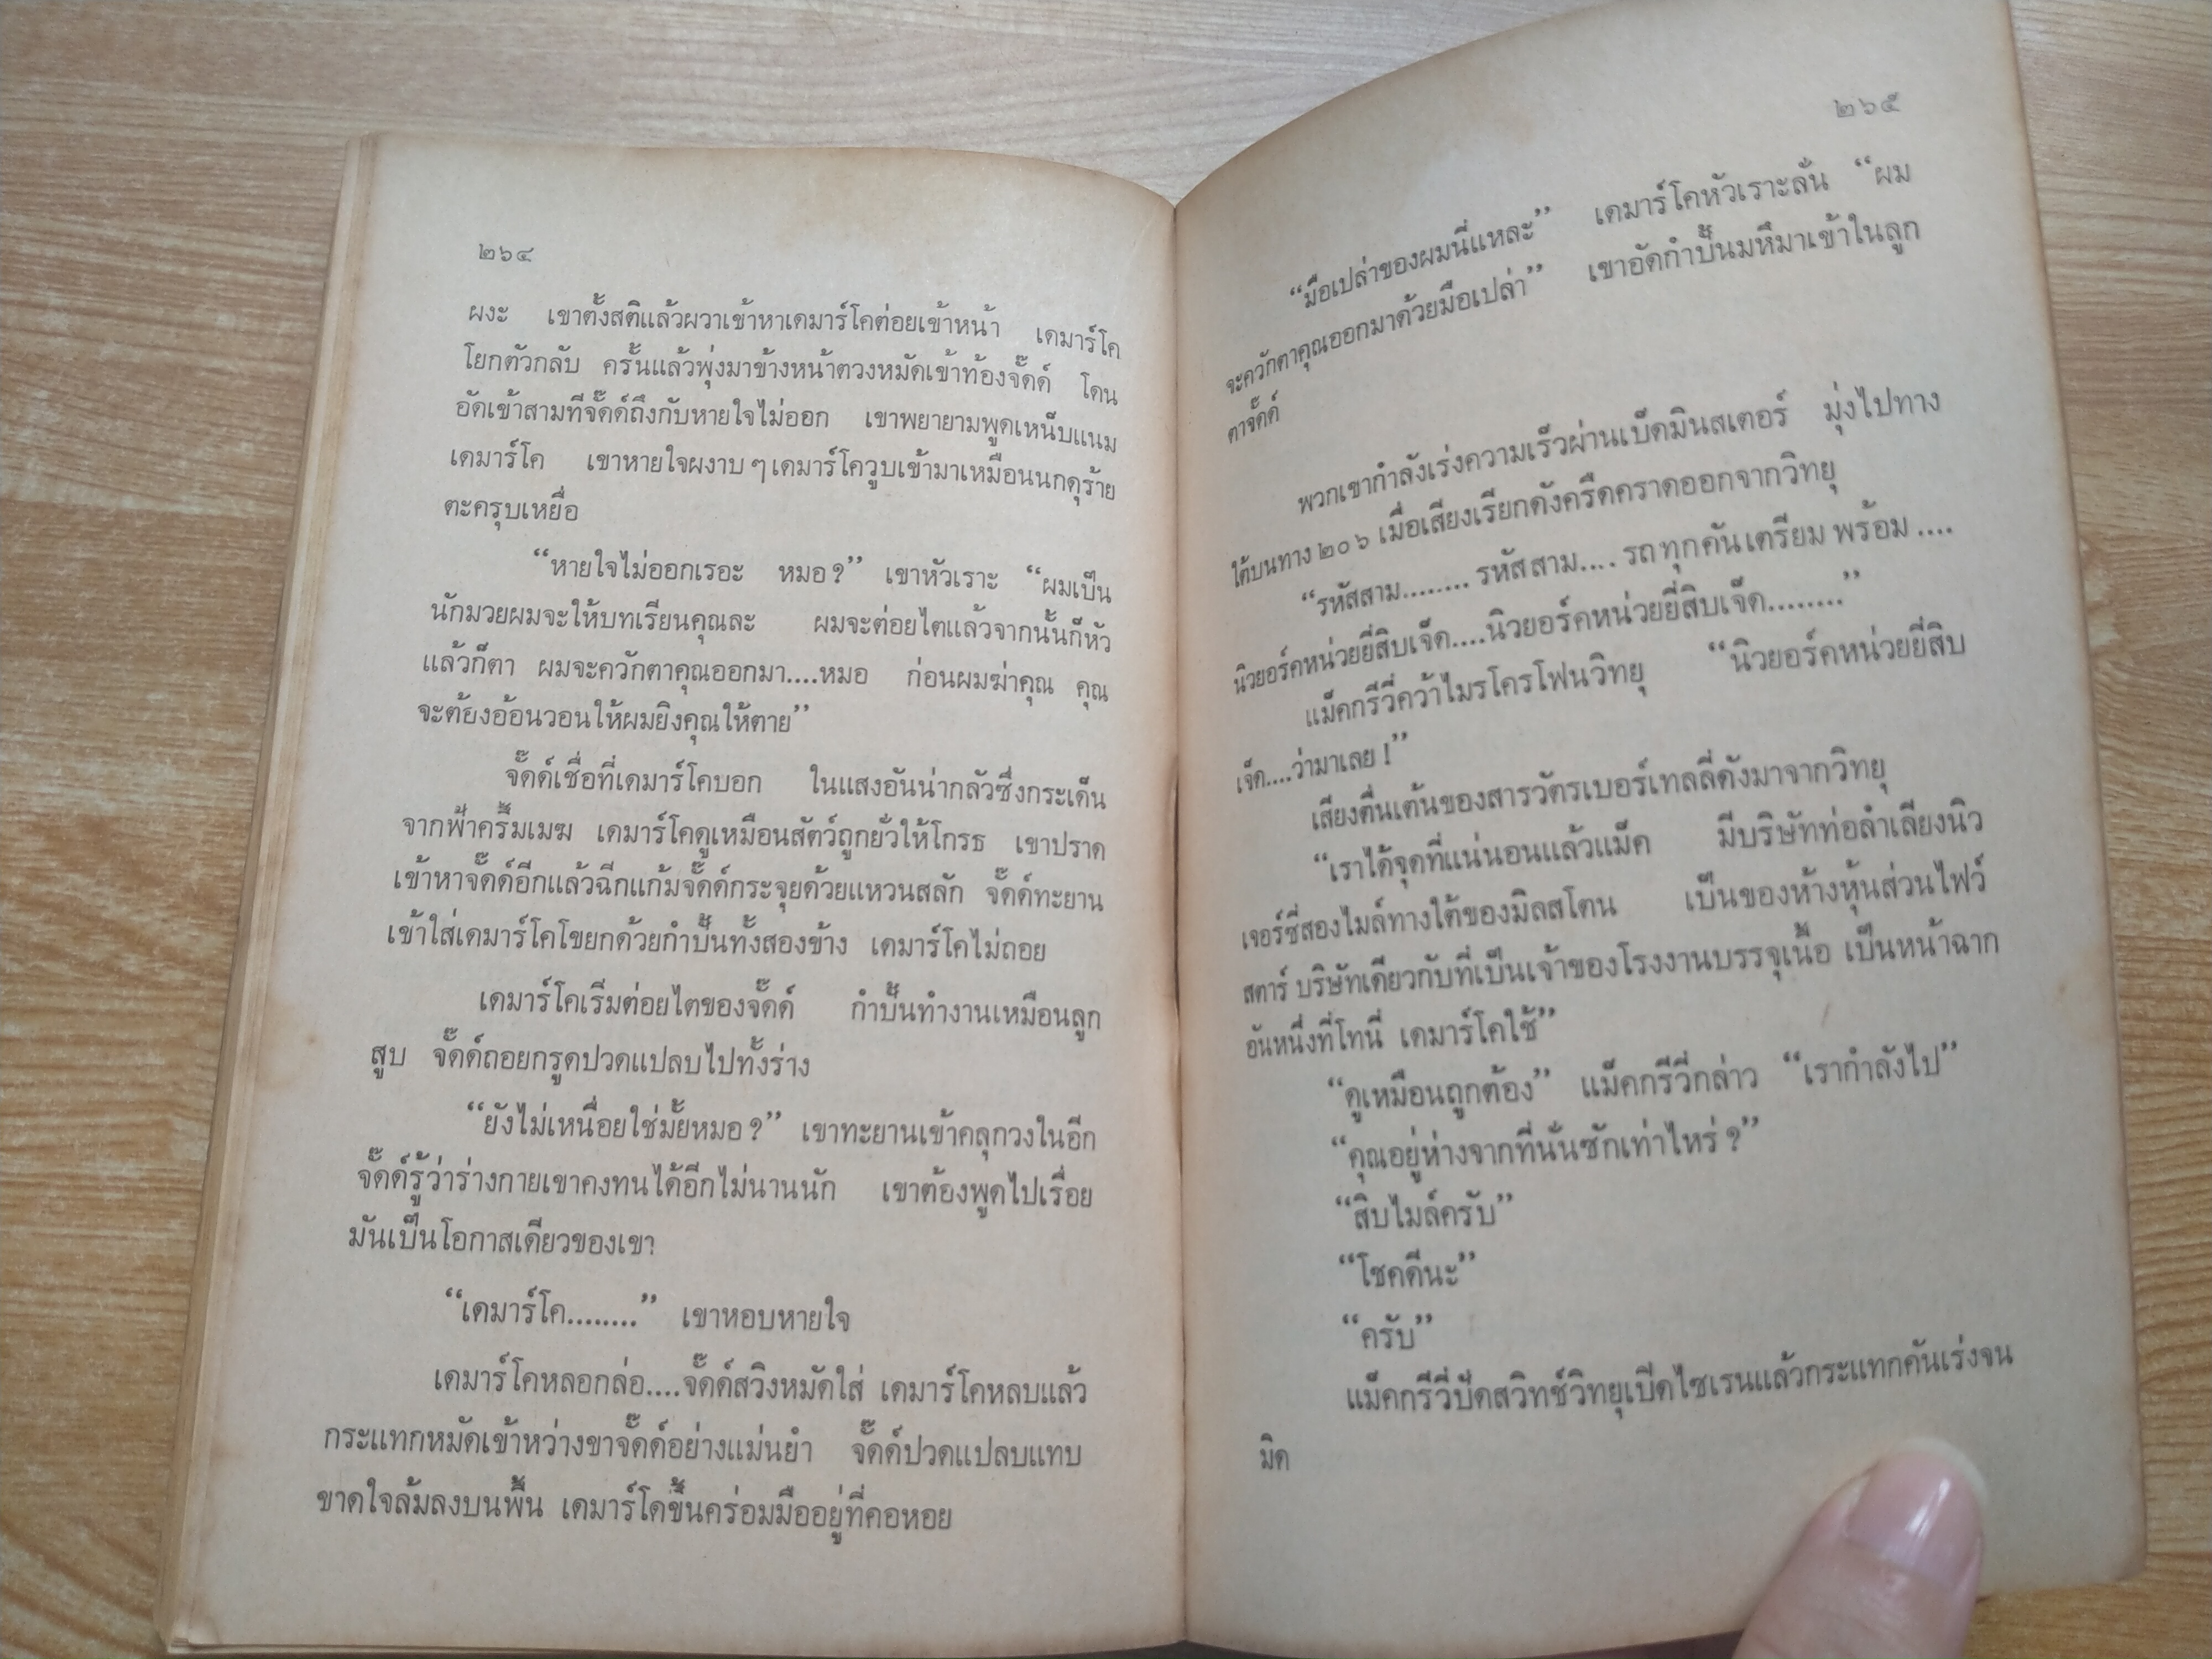 ๒๖๔
ผงะ เขาตั้งสติแล้วผวาเข้าหาเดมาร์โคต่อยเข้าหน้า เดมาร์โค
โยกตัวกลับ ครั้นแล้วพุ่งมาข้างหน้าตวงหมัดเข้าท้องจั๊ดด์ โดน
อัดเข้าสามทีจั๊ดด์ถึงกับหายใจไม่ออก เขาพยายามพูดเหน็บแนม
เดมาร์โค เขาหายใจผงาบ ๆ เดมาร์โควูบเข้ามาเหมือนนกดุร้าย
ตะครุบเหยื่อ
“หายใจไม่ออกเรอะ หมอ ?” เขาหัวเราะ “ผมเป็น
นักมวยผมจะให้บทเรียนคุณละ ผมจะต่อยไตแล้วจากนั้นก็หัว
แล้วก็ตา ผมจะควักตาคุณออกมา....หมอ ก่อนผมฆ่าคุณ คุณ
จะต้องอ้อนวอนให้ผมยิงคุณให้ตาย”
จั๊ดด์เชื่อที่เดมาร์โคบอก ในแสงอันน่ากลัวซึ่งกระเด็น
จากฟ้าครึ้มเมฆ เดมาร์โคดูเหมือนสัตว์ถูกยั่วให้โกรธ เขาปราด
เข้าหาจั๊ดด์อีกแล้วฉีกแก้มจั๊ดด์กระจุยด้วยแหวนสลัก จั๊ดด์ทะยาน
เข้าใส่เดมาร์โคโขยกด้วยกำปั้นทั้งสองข้าง เดมาร์โคไม่ถอย
เดมาร์โคเริ่มต่อยไตของจั๊ดด์ กำปั้นทำงานเหมือนลูก
สูบ จั๊ดด์ถอยกรูดปวดแปลบไปทั้งร่าง
“ยังไม่เหนื่อยใช่มั้ยหมอ ?” เขาทะยานเข้าคลุกวงในอีก
จั๊ดด์รู้ว่าร่างกายเขาคงทนได้อีกไม่นานนัก เขาต้องพูดไปเรื่อย
มันเป็นโอกาสเดียวของเขา
“เดมาร์โค........” เขาหอบหายใจ
เดมาร์โคหลอกล่อ....จั๊ดด์สวิงหมัดใส่ เดมาร์โคหลบแล้ว
กระแทกหมัดเข้าหว่างขาจั๊ดด์อย่างแม่นยำ จั๊ดด์ปวดแปลบแทบ
ขาดใจล้มลงบนพื้น เดมาร์โคขึ้นคร่อมมืออยู่ที่คอหอย
๒๖๕
“มือเปล่าของผมนี่แหละ” เดมาร์โคหัวเราะลั่น “ผม
จะควักตาคุณออกมาด้วยมือเปล่า” เขาอัดกำปั้นมหึมาเข้าในลูก
ตาจั๊ดด์
พวกเขากำลังเร่งความเร็วผ่านเบ็ดมินสเตอร์ มุ่งไปทาง
ใต้บนทาง ๒๐๖ เมื่อเสียงเรียกดังครืดคราดออกจากวิทยุ
“รหัสสาม........ รหัสสาม.... รถทุกคันเตรียม พร้อม ....
นิวยอร์คหน่วยยี่สิบเจ็ด....นิวยอร์คหน่วยยี่สิบเจ็ด........”
แม็คกรีวี่คว้าไมรโครโฟนวิทยุ “นิวยอร์คหน่วยยี่สิบ
เจ็ด....ว่ามาเลย !”
เสียงตื่นเต้นของสารวัตรเบอร์เทลลี่ดังมาจากวิทยุ
“เราได้จุดที่แน่นอนแล้วแม็ค มีบริษัทท่อลำเลียงนิว
เจอร์ซี่สองไมล์ทางใต้ของมิลสโตน เป็นของห้างหุ้นส่วนไฟว์
สตาร์ บริษัทเดียวกับที่เป็นเจ้าของโรงงานบรรจุเนื้อ เป็นหน้าฉาก
อันหนึ่งที่โทนี่ เดมาร์โคใช้”
“ดูเหมือนถูกต้อง” แม็คกรีวี่กล่าว “เรากำลังไป”
“คุณอยู่ห่างจากที่นั่นซักเท่าไหร่ ?”
“สิบไมล์ครับ”
“โชคดีนะ”
“ครับ”
แม็คกรีวี่ปัดสวิทช์วิทยุเปิดไซเรนแล้วกระแทกคันเร่งจน
มิด